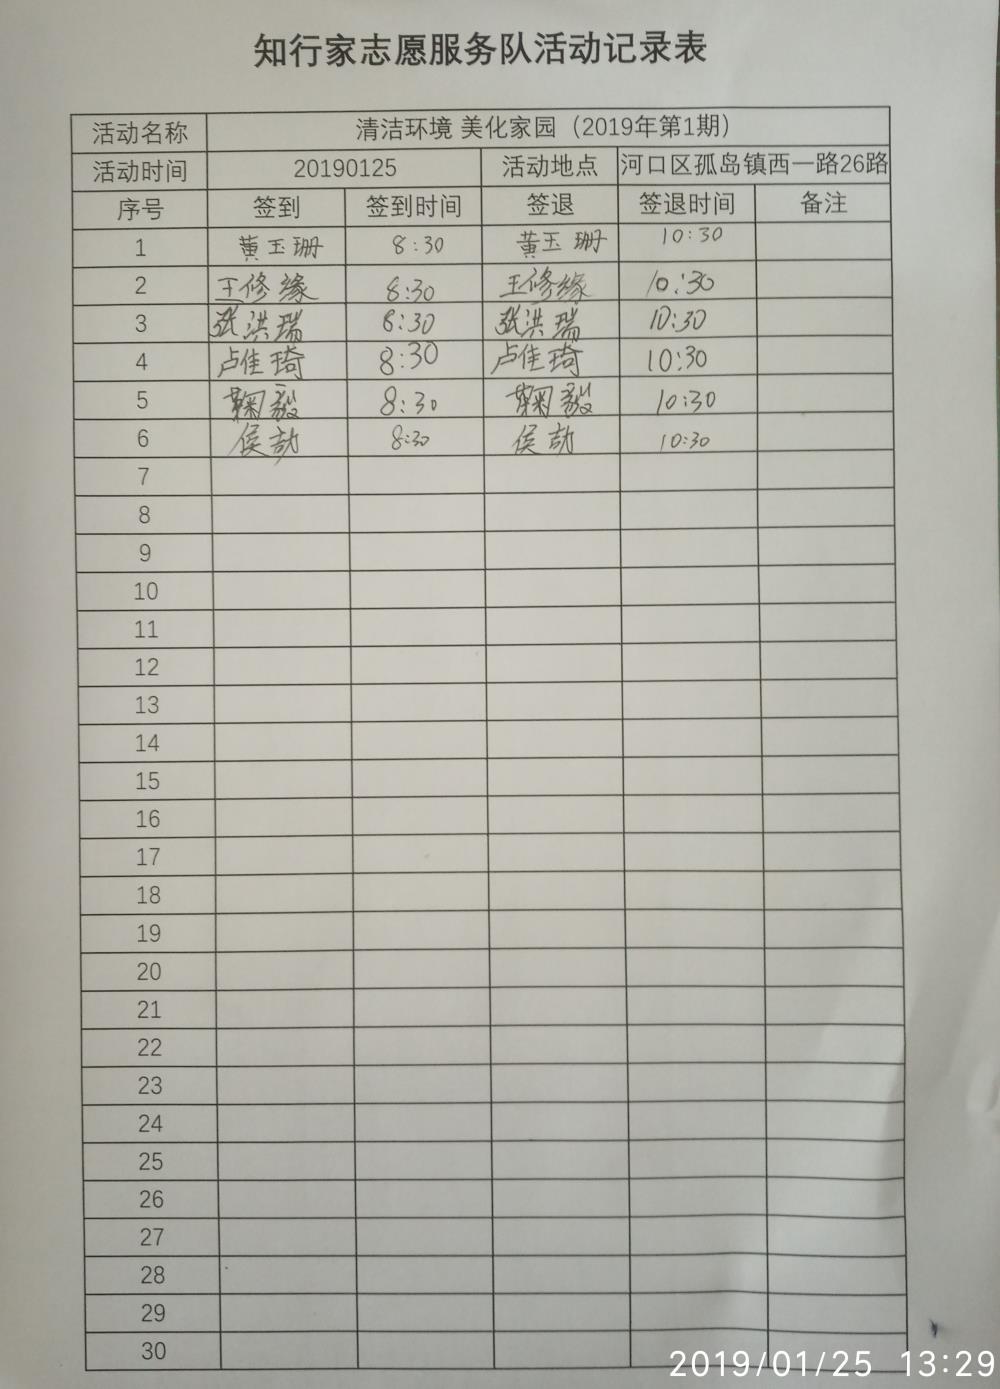 知行家志愿服务队活动记录表
活动名称 清洁环境 美化家园（2019年第1期）
活动时间 20190125 活动地点 河口区孤岛镇西一路26路
序号 签到 签到时间 签退 签退时间 备注
1 黄玉珊 8:30 黄玉珊 10:30
2 王修缘 8:30 王修缘 10:30
3 张洪瑞 8:30 张洪瑞 10:30
4 卢佳琦 8:30 卢佳琦 10:30
5 鞠毅 8:30 鞠毅 10:30
6 侯劼 8:30 侯劼 10:30
7
8
9
10
11
12
13
14
15
16
17
18
19
20
21
22
23
24
25
26
27
28
29
30
2019/01/25 13:29